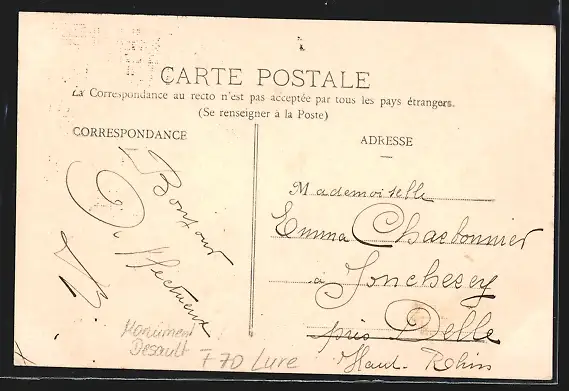 CARTE POSTALE
La Correspondance au recto n'est pas acceptée par tous les pays étrangers.
(Se renseigner à la Poste)
CORRESPONDANCE
Bonjour
Affectueux
Monument
Desault
F 70 Lure
ADRESSE
Mademoiselle
Emma Charbonnier
à Joncherey
près Delle
Haut-Rhin